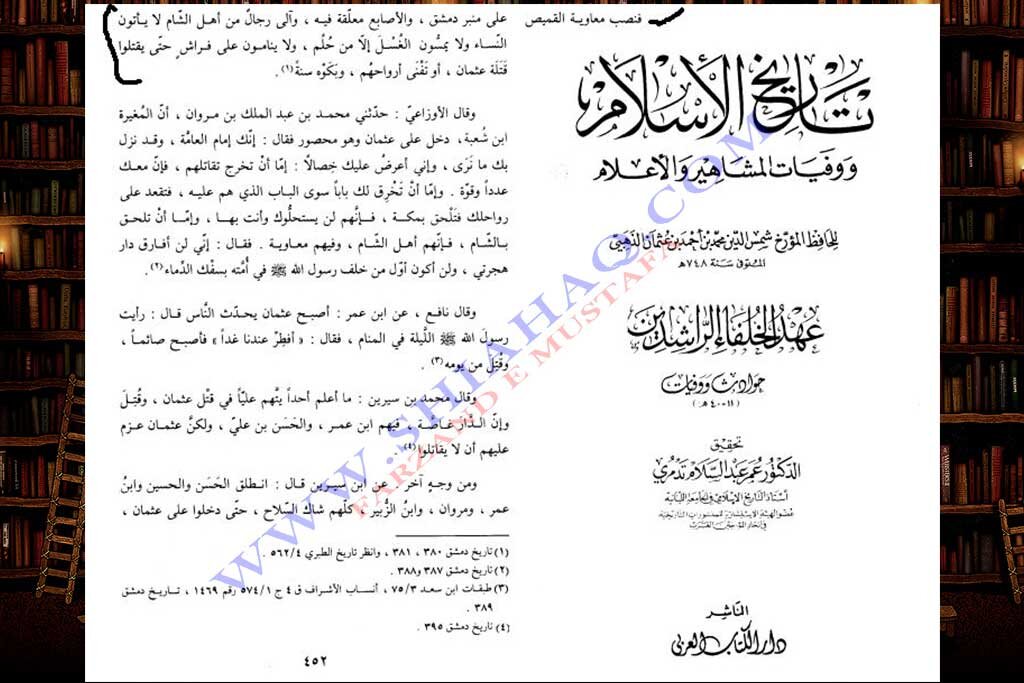 فنصب معاوية القميص
تاريخ الإسلام
ووفيات المشاهير والأعلام
للحافظ المؤرخ شمس الدين محمد بن أحمد بن عثمان الذهبي
المتوفى سنة ٧٤٨هـ
عهد الخلفاء الراشدين
حوادث ووفيات
(١١-٤٠هـ)
تحقيق
الدكتور عمر عبد السلام تدمري
أستاذ التاريخ الإسلامي في الجامعة اللبنانية
الناشر
دار الكتاب العربي
على منبر دمشق ، والأصابع معلّقة فيه ، وآلى رجالٌ من أهل الشّام لا يأتون
النّساء ولا يمسّون الغُسْلَ إلّا من حُلُم ، ولا ينامون على فراشٍ حتّى يقتلوا
قَتَلَة عثمان ، أو تَفْنَى أرواحهُم ، وبَكَوْه سنةً(١) .
وقال الأوزاعيّ : حدّثني محمد بن عبد الملك بن مروان ، أنّ المُغيرة
ابن شُعبة، دخل على عثمان وهو محصور فقال : إنّك إمام العامّة ، وقد نزل
بك ما تَرَى ، وإني أعرضُ عليك خِصالًا : إمّا أنْ تخرج تقاتلهم ، فإنّ معك
عدداً وقوّة . وإمّا أنْ تَخْرِق لك باباً سوى الباب الذي هم عليه ، فتقعد على
رواحلك فَتَلْحق بمكة ، فـإنّهم لن يستحلُّوك وأنت بهـا ، وإمّـا أنْ تلحق
بالشّام ، فإنّهم أهل الشّام ، وفيهم معاويـة . فقال : إنّي لن أفارق دار
هجرتي ، ولن أكون أوّل من خلف رسول الله ﷺ في أمّته بسفْك الدِّماء(٢) .
وقال نافـع ، عن ابن عمر : أصبح عثمان يحدّث النَّاس قـال : رأيت
رسولَ الله ﷺ اللّيلة في المنام ، فقال : « أفطِرْ عندنا غداً » فأصبح صائمـاً ،
وقُتِلَ من يومه(٣) .
وقال محمد بن سيرين : ما أعلم أحداً يتّهم عليّاً في قتْل عثمان ، وقُتِلَ
وإنّ الـدَّار غاصّـة ، فيهم ابن عمـر ، والحَسَن بن عليّ ، ولكنّ عثمـان عـزم
عليهم أن لا يقاتلوا(٤) .
ومن وجـهٍ آخر . عن ابن سيـرين قـال : انـطلق الحَسَن والحسين وابنُ
عمر ، ومروان ، وابنُ الزُّبير ، كلّهم شاك السِّلاح ، حتّى دخلوا على عثمان ،
(١) تاريخ دمشق ٣٨٠ ، ٣٨١ ، وانظر تاريخ الطبري ٥٦٢/٤ .
(٢) تاريخ دمشق ٣٨٧ و٣٨٨ .
(٣) طبقات ابن سعد ٧٥/٣ ، أنساب الأشراف ق ٤ ج ٥٧٤/١ رقم ١٤٦٩ ، تـاريـخ دمشق
٣٨٩ .
(٤) تاريخ دمشق ٣٩٥ .
٤٥٢
WWW.SHIAHAQ.COM
FARZAND E MUSTAFA